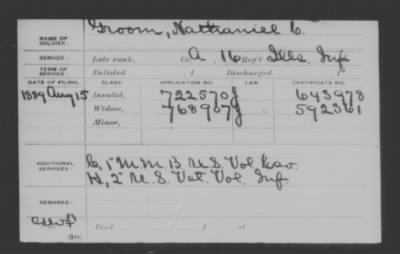 Groom, Nathaniel C.
NAME OF SOLDIER:
SERVICE: Late rank, Co. A, 16 Reg't Ills. Inf
TERM OF SERVICE: Enlisted , 1 Discharged , 1
DATE OF FILING. CLASS. APPLICATION NO. LAW. CERTIFICATE NO.
1889 Aug 15 Invalid, 722570 J 643978
Widow, 768907 J 592361
Minor,
ADDITIONAL SERVICES: C, 1" M.M.B. U.S. Vol Cav.
H, 2" U.S. Vet. Vol. Inf.
REMARKS:
Died , 1 at